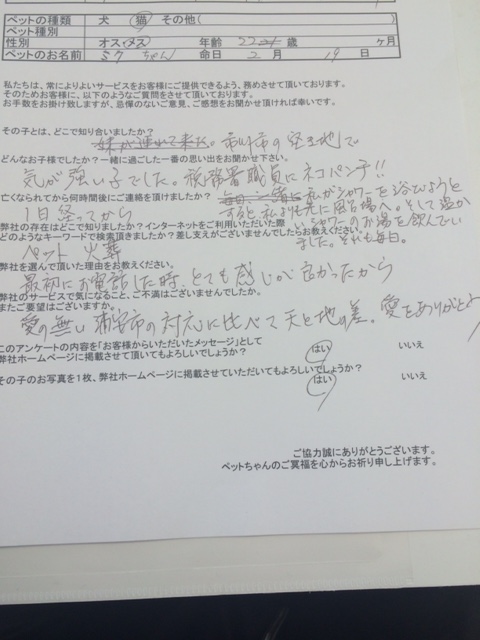 ペットの種類 犬 猫 その他( )
ペット種別
性別 オス・メス 年齢 22 歳 ヶ月
ペットのお名前 ミク ちゃん 命日 2 月 19 日
私たちは、常によりよいサービスをお客様にご提供できるよう、務めさせて頂いております。
そのためお客様に、以下のようなご質問をさせて頂いております。
お手数をお掛け致しますが、忌憚のないご意見、ご感想をお聞かせ頂ければ幸いです。
その子とは、どこで知り合いましたか？
妹が連れて来た。市川市の空き地で
どんなお子様でしたか？一緒に過ごした一番の思い出をお聞かせ下さい。
気が強い子でした。税務署職員にネコパンチ!!
亡くなられてから何時間後にご連絡を頂けましたか？ 毎日一緒に私がシャワーを浴びようと
1日経ってから すると私よりも先に風呂場へ。そして温か
弊社の存在はどこで知りましたか？インターネットをご利用いただいた際 シャワーのお湯を飲んでい
どのようなキーワードで検索頂きましたか？差し支えがございませんでしたらお教えください。 ました。それも毎日。
ペット 火葬
弊社を選んで頂いた理由をお教えください。
最初にお電話した時、とても感じが良かったから
弊社のサービスで気になること、ご不満はございませんでしたか。
またご要望はございますか。
愛の無い浦安市の対応に比べて天と地の差。愛をありがとう
このアンケートの内容を「お客様からいただいたメッセージ」として
弊社ホームページに掲載させて頂いてもよろしいでしょうか？ はい いいえ
その子のお写真を1枚、弊社ホームページに掲載させていただいてもよろしいでしょうか？
はい いいえ
ご協力誠にありがとうございます。
ペットちゃんのご冥福を心からお祈り申し上げます。